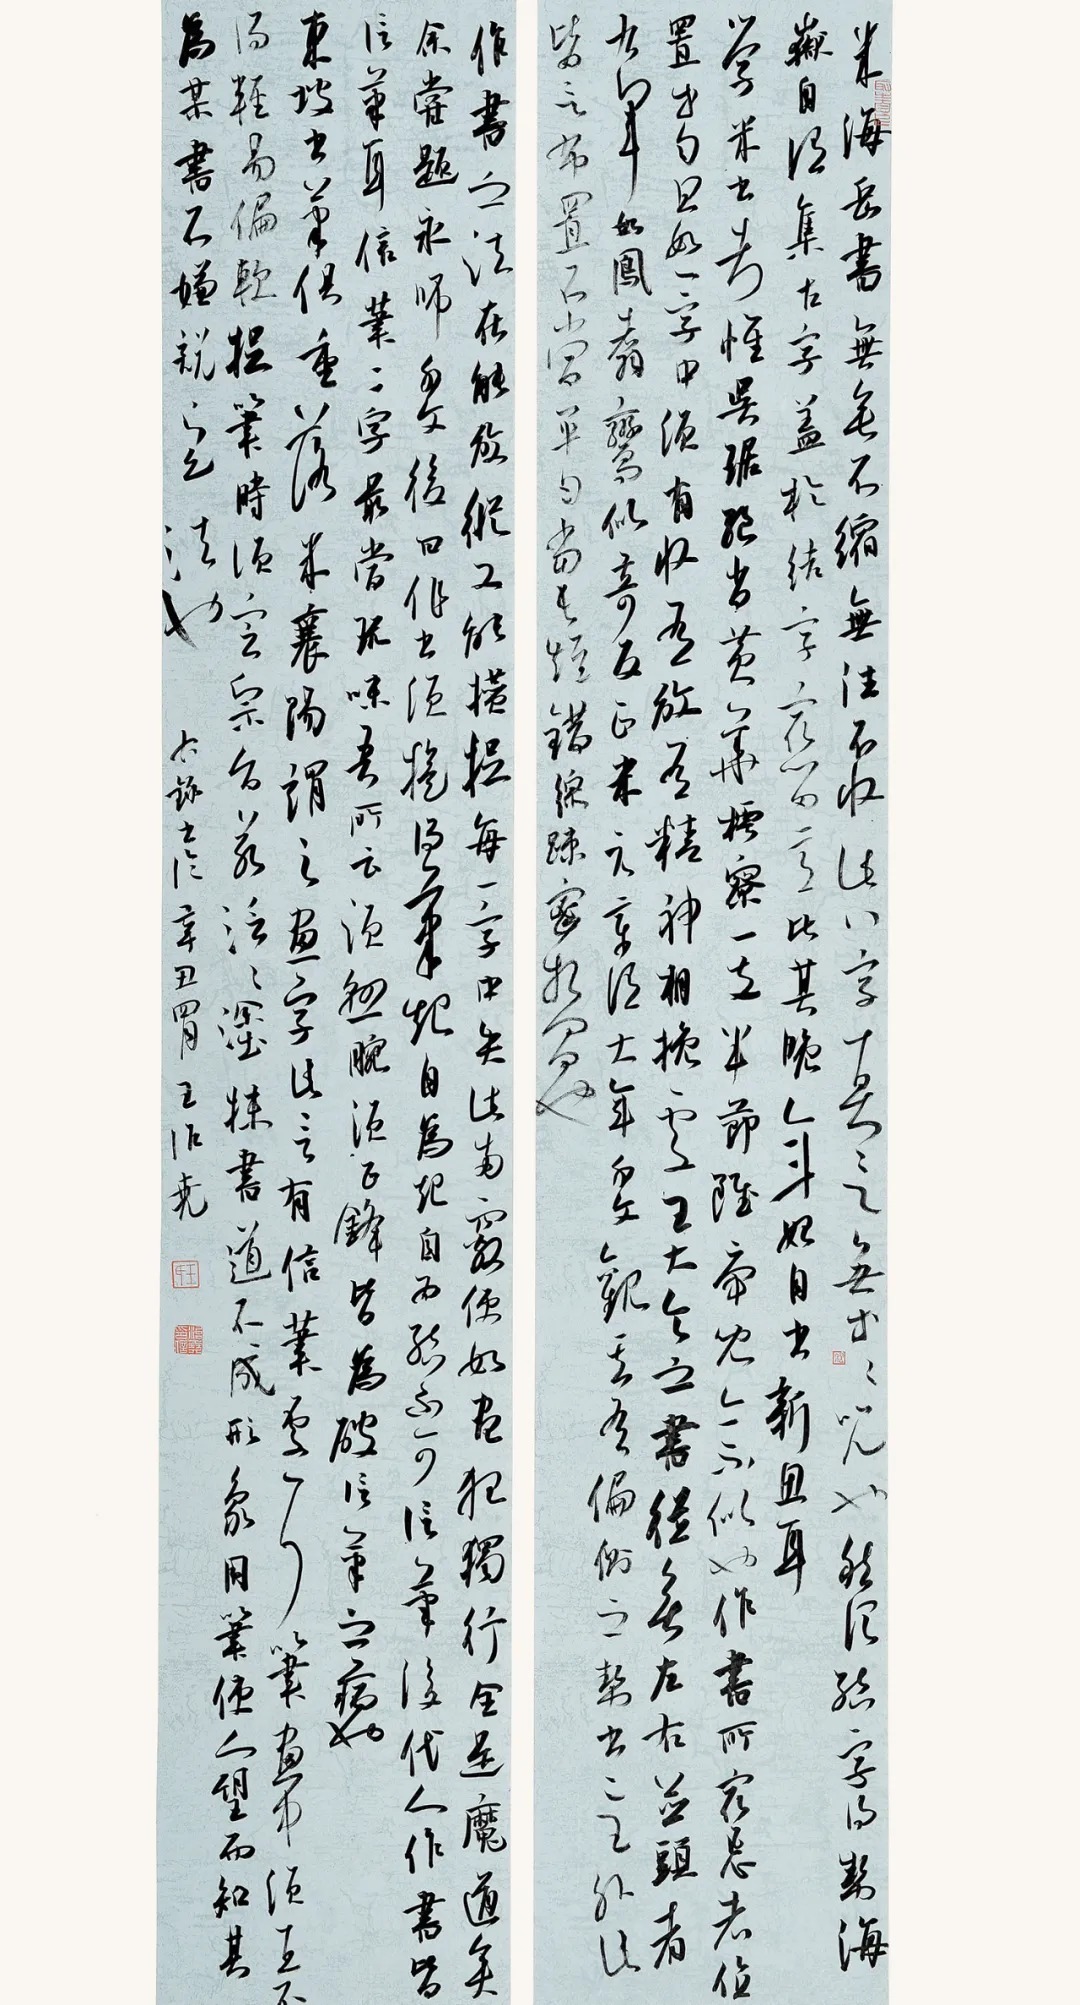 米海岳書無垂不縮無往不收此八字真言無等等咒也然須結字得勢海
嶽自謂集古字蓋於結字最留意比其晚年始自出新意耳
學米書者惟吳琚絕肖黃華樗寮一支半節雖虎兒亦不似也作書所最忌者位
置等勻且如一字中須有收有放有精神相挽處王大令之書從無左右並頭者
右軍如鳳翥鸞似奇反正米元章謂大年千文觀其有偏側之勢出二王外此
皆言布置不當平勻當長短錯綜疏密相間也
作書之法在能放縱又能攢捉每一字中失此兩竅便如晝夜獨行全是魔道矣
余嘗題永師千文後曰作書須提得筆起自為起自為結不可信筆後代人作書皆
信筆耳信筆二字最當玩味吾所云須懸腕須正鋒皆為破信筆之病也
東坡書筆俱重落米襄陽謂之畫字此言有信筆處耳筆畫中須直不
得輕易偏軟捉筆時須定宗旨若泛泛塗抹書道不成形象用筆使人望而知其
為某書不嫌說定法也
右錄辛丑王作堯